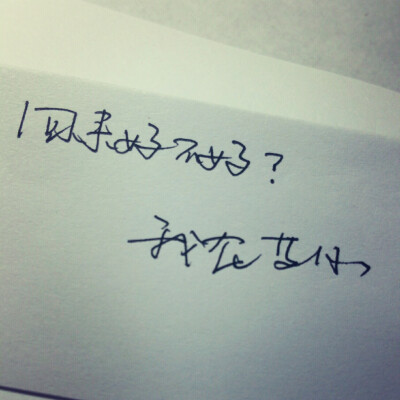 回来好不好？
我在等你